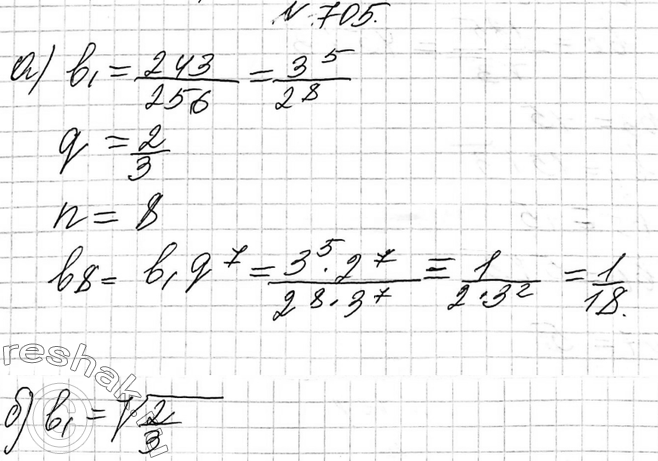 № 705.
а) b₁ = 243/256 = 3⁵/2⁸
q = 2/3
n = 8
b8 = b₁q⁷ = 3⁵·2⁷/2⁸·3⁷ = 1/2·3² = 1/18.
reshak.ru
б) b₁ = √2/3